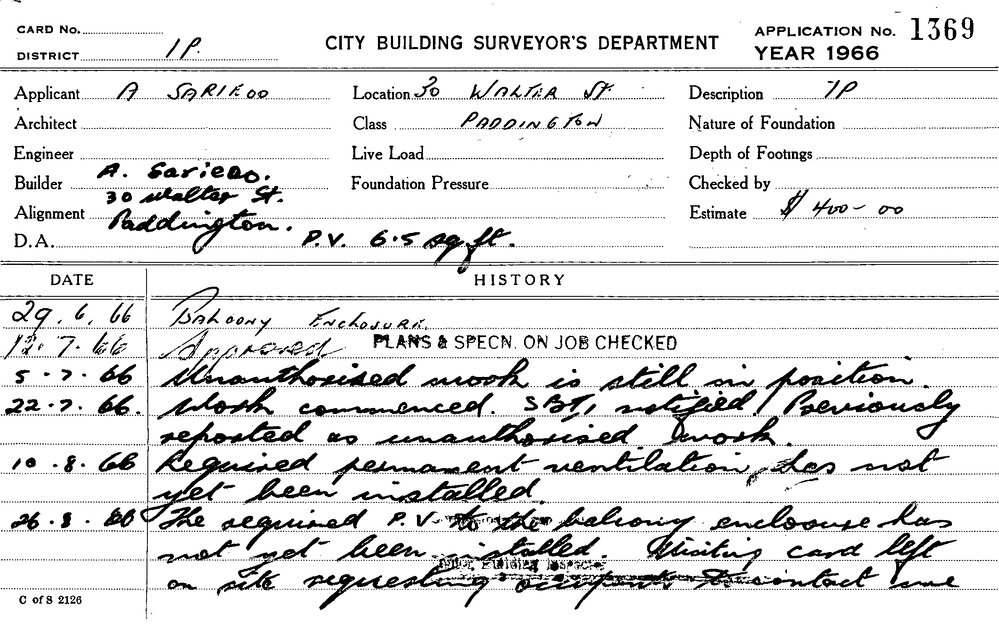 CARD No.
DISTRICT 1P.
CITY BUILDING SURVEYOR'S DEPARTMENT
APPLICATION No. 1369
YEAR 1966
Applicant A SARIEDO
Location 30 WALTER ST
Description 1P
Architect
Class PADDINGTON
Nature of Foundation
Engineer
Live Load
Depth of Footings
Builder A. Sariedo.
30 Walter St.
Paddington.
Foundation Pressure
Checked by
Alignment
Estimate $ 400-00
D.A. P.V. 6.5 sq ft.
DATE HISTORY
29.6.66 BALCONY ENCLOSURE.
12.7.66 Approved PLANS & SPECN. ON JOB CHECKED
5.7.66 Unauthorised work is still in position.
22.7.66. Work commenced. notified. Previously
reported as unauthorised work.
10.8.66 Required permanent ventilation, has not
yet been installed.
26.8.66 The required P.V. to the balcony enclosure has
not yet been installed. Visiting card left
Building Inspector
on site requesting occupants to contact me
C of S 2126